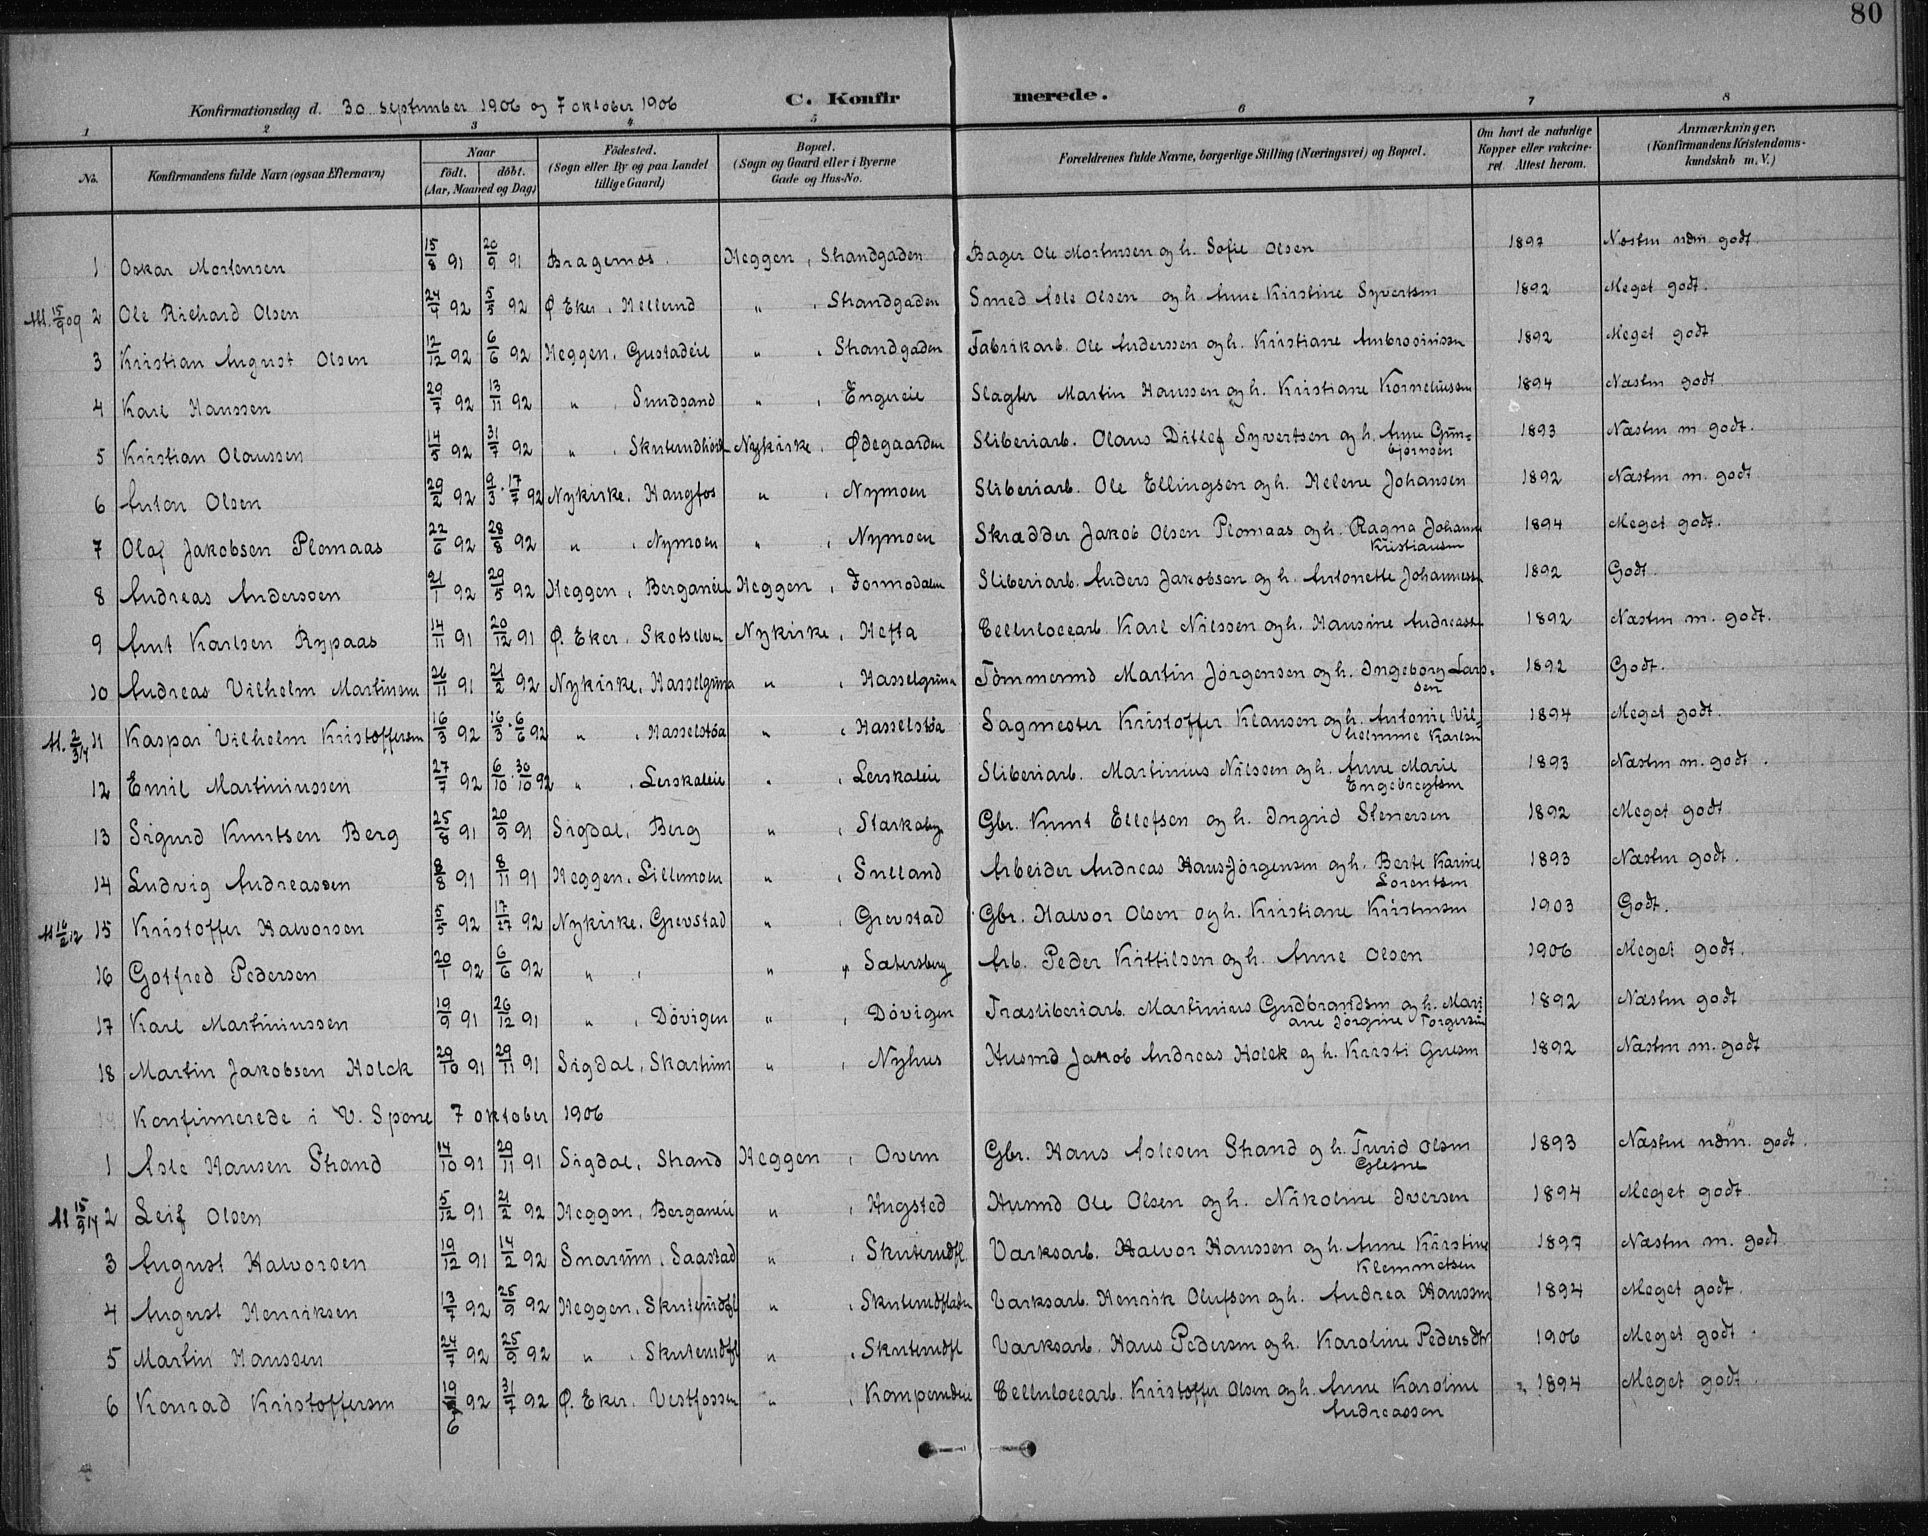 80
Konfirmationsdag d. 30 september 1906 og 7 oktober 1906 C. Konfirmerede.
1 2 3 4 5 6 7 8
No. Konfirmandens fulde Navn (ogsaa Efternavn) Naar født. døbt. (Aar, Maaned og Dag) Födested. (Sogn eller By og paa Landet tillige Gaard) Bopæl. (Sogn og Gaard eller i Byerne Gade og Hus-No. Forældrenes fulde Navne, borgerlige Stilling (Næringsvei) og Bopæl. Om havt de naturlige Kopper eller vakcineret. Attest herom. Anmærkninger. (Konfirmandens Kristendomskundskab m. V.)
1 Oskar Mortensen 15/8 91 20/9 91 Bragernes. Heggen, Strandgaden Bager Ole Mortensen og h. Sofie Olsen 1892 Næsten ndm. godt.
Att. 15/9 09 2 Ole Richard Olsen 24/4 92 5/5 92 Ø Eker, Hellund " , Strandgaden Smed Asle Olsen og h Anne Kirstine Syvertsen 1892 Meget godt.
3 Kristian August Olsen 17/12 92 6/6 92 Heggen, Gustadeie " , Strandgaden Fabrikarb. Ole Anderssen og h. Kristiane Ambrosiussen 1892 Meget godt
4 Karl Hanssen 29/7 92 13/11 92 " , Sundsand " , Engereie Slagter Martin Hanssen og h. Kristiane Korneliussen 1894 Næsten godt.
5 Kristian Olaussen 14/5 92 31/7 92 " , Nykirke, Ødegaarden Sliberiarb. Olaus Ditlef Syvertsen og h. Anne Gunbjørnsen 1893 Næsten m godt.
6 Anton Olsen 29/2 92 9/3 · 17/7 92 Nykirke, Haugfos " , Nymoen Sliberiarb. Ole Ellingsen og h. Helene Johansen 1892 Næsten m. godt
7 Olaf Jakobsen Plomaas 22/6 92 28/8 92 " , Nymoen " , Nymoen Skrædder Jakob Olsen Plomaas og h. Ragna Johanne Kristiansen 1894 Meget godt.
8 Andreas Anderssen 21/1 92 29/5 92 Heggen, Berganeie Heggen, Formodalen Sliberiarb. Anders Jakobsen og h. Antonette Johannessen 1892 Godt.
9 Arnt Karlsen Rypaas 14/11 91 20/12 91 Ø. Eker, Skotselven Nykirke, Hefta Cellulosearb. Karl Nilssen og h. Hansine Andreassen 1892 Næsten m. godt.
10 Andreas Vilhelm Martinsen 26/11 91 21/2 92 Nykirke, Hasselgruva " , Hasselgruva Tømmermd Martin Jørgensen og h. Ingeborg Larssen 1892 Godt.
At. 2/3 14 11 Kaspar Vilhelm Kristoffersen 16/3 92 16/3 · 6/6 92 " , Hasselstøa " , Hasselstøa Sagmester Kristoffer Klausen og h. Antonie Vilhelmine Karlsen 1894 Meget godt.
12 Emil Martiniussen 27/7 92 6/10 · 30/10 92 " , Lerskaleie " , Lerskaleie Sliberiarb. Martinius Nilssen og h. Anne Marie Engebregtsen 1893 Næsten m. godt.
13 Sigurd Knutsen Berg 25/8 91 20/9 91 Sigdal, Berg " , Gbr. Knut Ellefsen og h. Ingrid Stenersen 1892 Meget godt
14 Ludvig Andreassen 8/8 91 8/11 91 Heggen, Lillemoen " , Snlland Arbeider Andreas Hans-Jørgensen og h. Berte Karine Lorentsen 1893 Næsten godt.
At 16/2 12 15 Kristoffer Halvorsen 5/5 92 17/27 92 Nykirke, Grevstad " , Grevstad Gbr. Halvor Olsen og h. Kristiane Kristensen 1903 Godt.
16 Gotfred Pedersen 20/1 92 6/6 92 " , " , Sætersberg Arb. Peder Kittilsen og h. Anne Olsen 1906 Meget godt.
17 Karl Martiniussen 19/9 91 26/12 91 " , Døvigen " , Døvigen Træsliberiarb. Martinius Gudbrandsen og h. Mariane Jørgine Torgersen 1892 Næsten godt
18 Martin Jakobsen Holck 29/10 91 29/11 91 Sigdal, Skartum " , Nyhus Husmd Jakob Andreas Holck og h. Kristi 1892 Næsten m. godt
Konfirmerede i V. Spone 7 oktober 1906
1 Asle Hansen Strand 14/10 91 29/11 91 Sigdal, Strand Heggen, Overn Gbr. Hans Aslesen Strand og h. Turid Olsen Glesne 1893 Næsten ndm. godt.
At 15/9 14 2 Leif Olsen 5/12 91 21/2 92 Heggen, Berganeie " , Hugsted Husmd Ole Olsen og h. Nikoline Iversen 1894 Meget godt.
3 August Halvorsen 19/12 91 14/2 92 Snarum, Saastad " , Skuterudfl. Værksarb. Halvor Hanssen og h. Anne Kirstine Klemmetsen 1897 Næsten m. godt.
4 August Henriksen 13/7 92 25/9 92 Heggen, Skuterudfl " , Skuterudflaten Værksarb. Henrik Olufsen og h. Andrea Hanssen 1894 Meget godt.
5 Martin Hanssen 24/7 92 25/9 92 " , Skuterudfl " , Skuterudfl Værksarb. Hans Pedersen og h. Karoline Pedersdtr 1906 Meget godt.
6 Konrad Kristoffersen 19/6 92 31/7 92 Ø. Eker, Vestfossen " , Komperudeie Cellulosearb. Kristoffer Olsen og h. Anne Karoline Andreassen 1894 Meget godt.